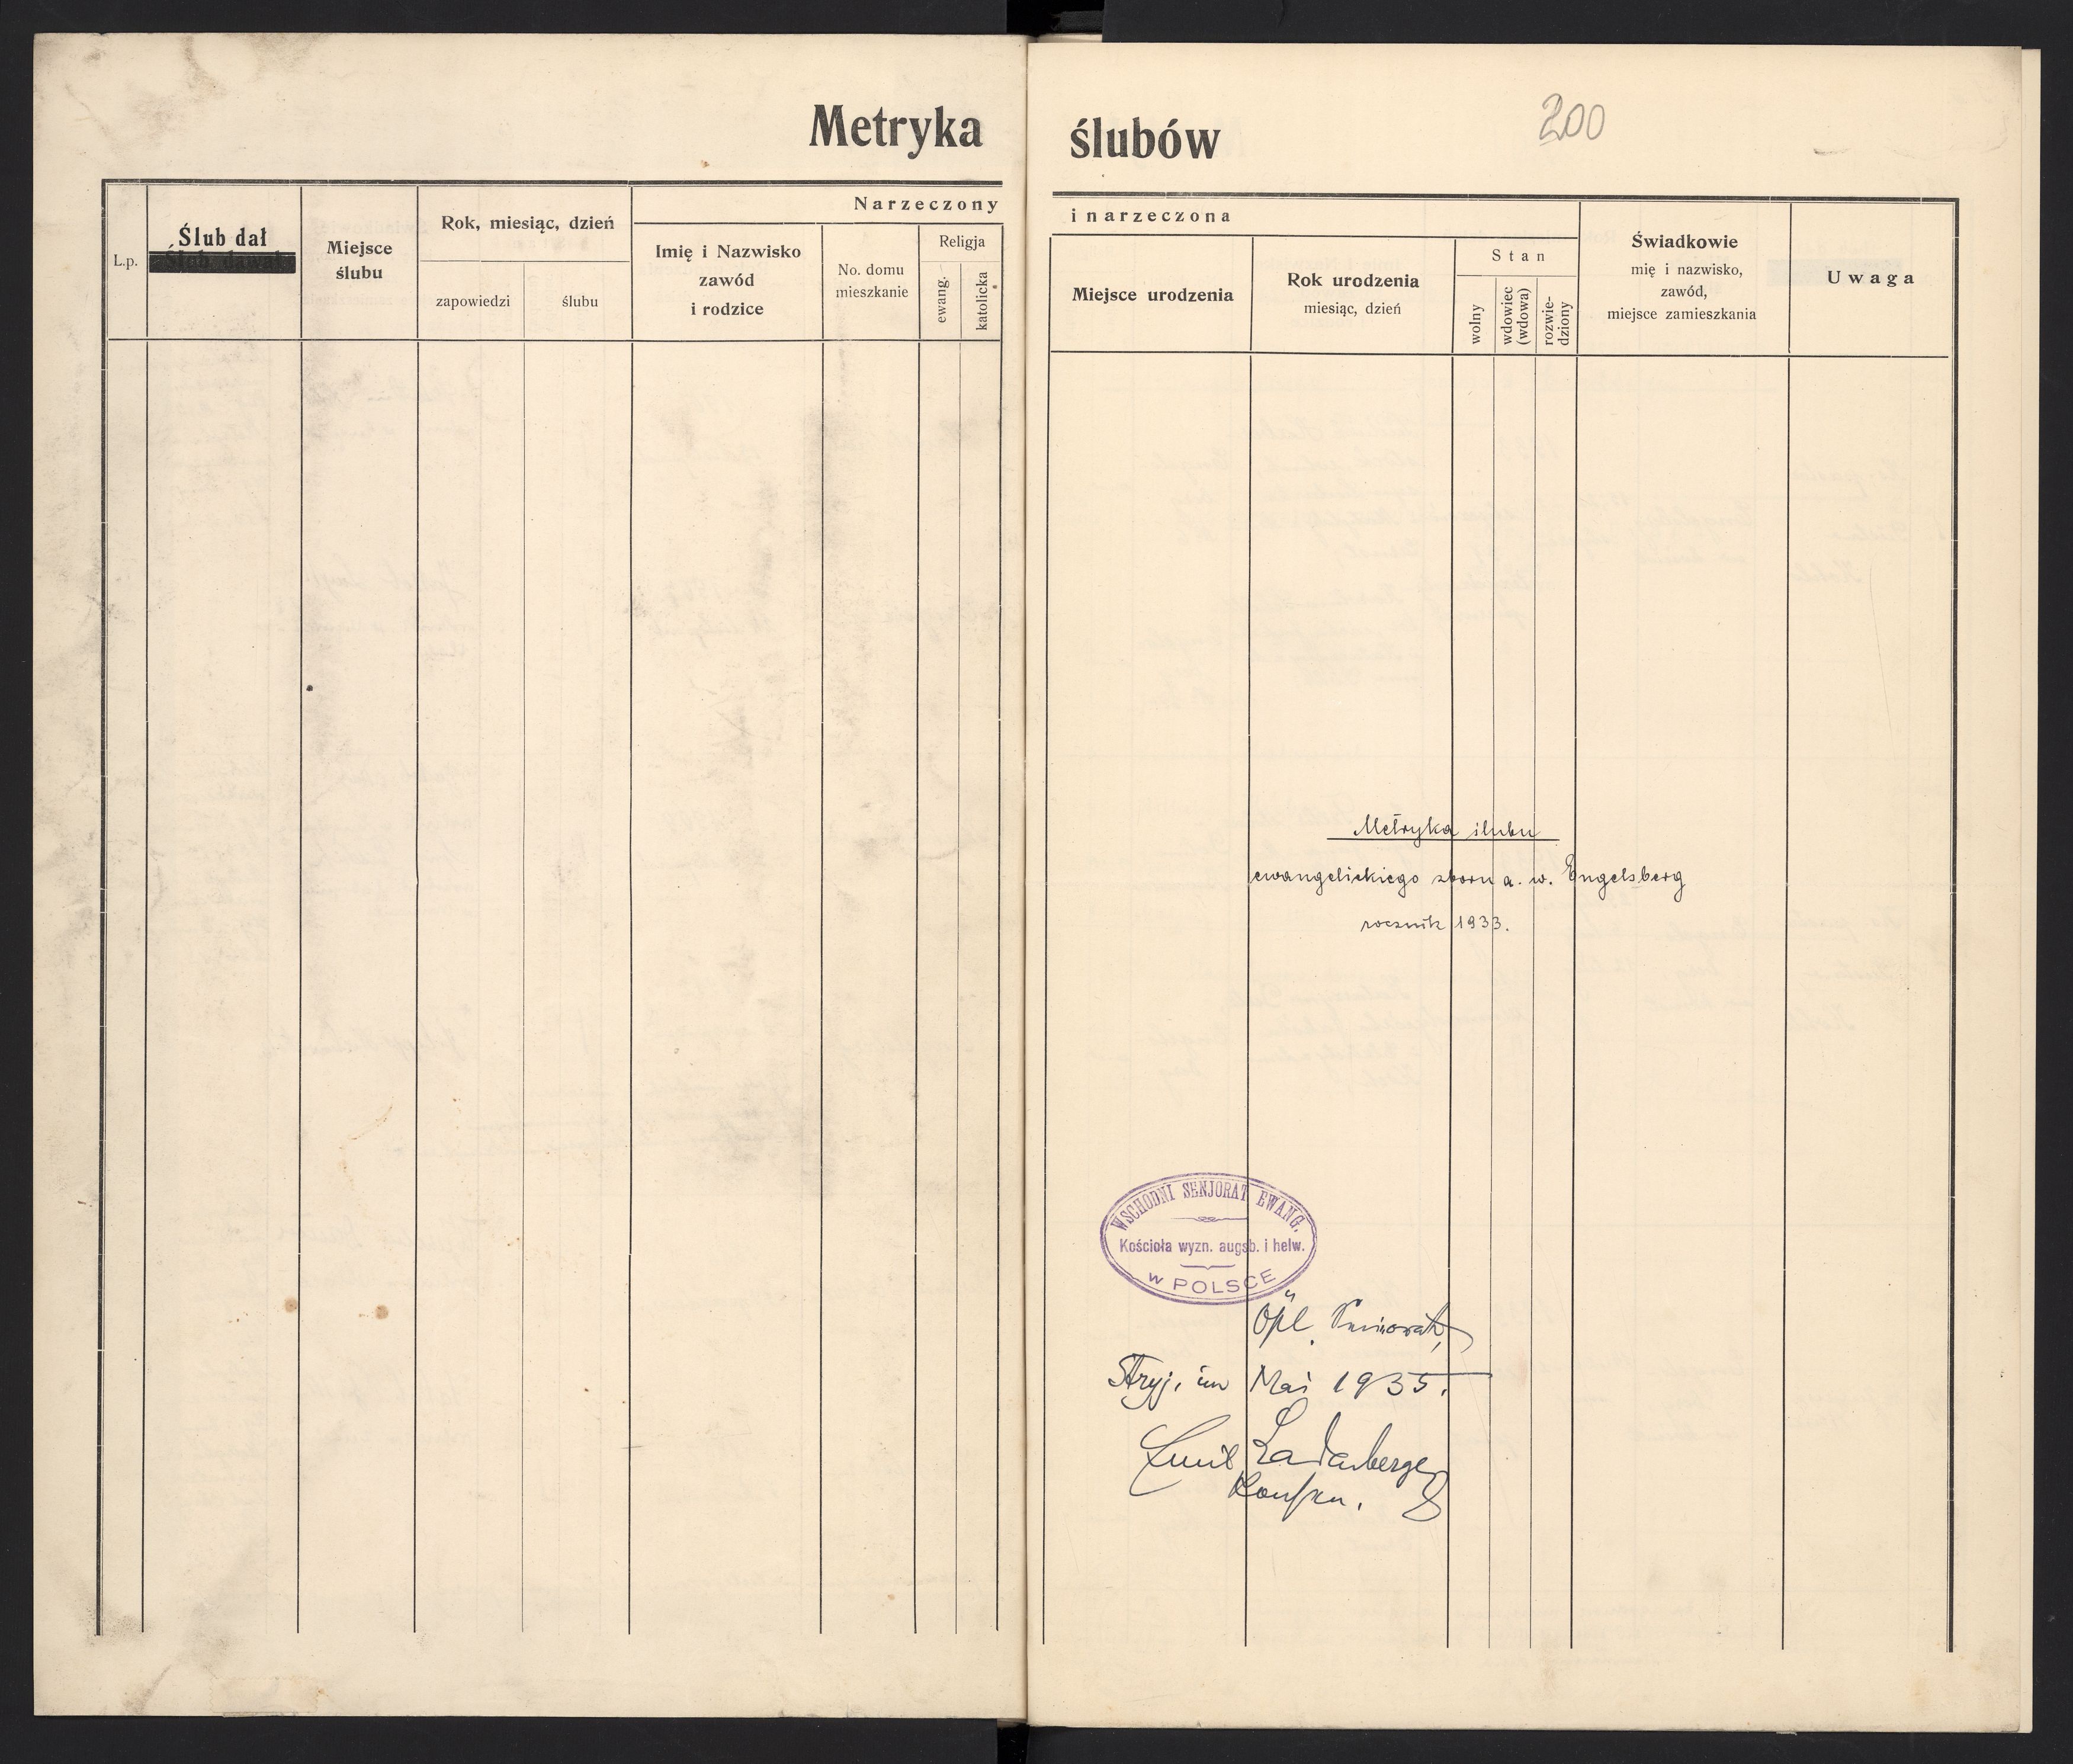 Metryka ślubów
200
L.p.
Ślub dał
Miejsce
ślubu
Rok, miesiąc, dzień
zapowiedzi
ślubu
Narzeczony
Imię i Nazwisko
zawód
i rodzice
No. domu
mieszkanie
Religja
ewang.
katolicka
i narzeczona
Miejsce urodzenia
Rok urodzenia
miesiąc, dzień
Stan
wolny
wdowiec
(wdowa)
rozwie-
dziony
Świadkowie
mię i nazwisko,
zawód,
miejsce zamieszkania
Uwaga
Metryka ślubu
ewangelickiego zboru a. w. Engelsberg
rocznik 1933.
WSCHODNI SENJORAT EWANG.
Kościoła wyzn. augsb. i helw.
w POLSCE
Öpl.
Stryj, im Mai 1935.
Emil Ladenberger